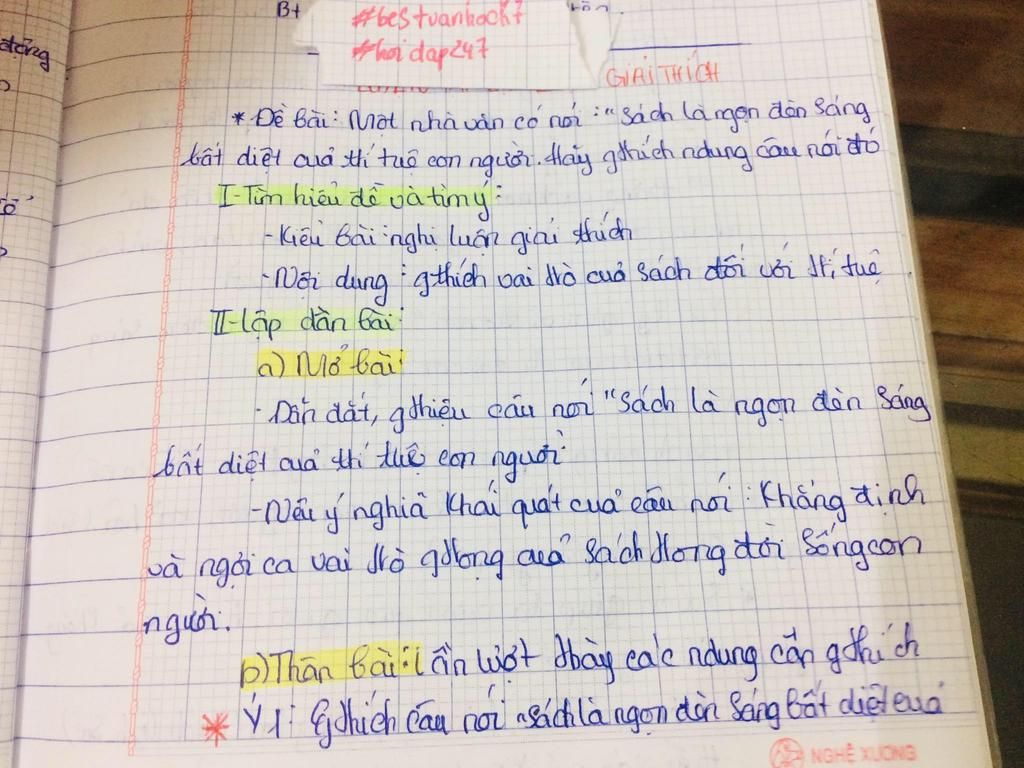 động
B+
#bestvanhock7
#hoidap247
GIẢI THÍCH
* Đề bài: Một nhà văn có nói: "Sách là ngọn đèn sáng
bất diệt của trí tuệ con người. Hãy gthích ndung câu nói đó
I-Tìm hiểu đề và tìm ý:
-Kiểu bài: nghị luận giải thích
-Nội dung: gthích vai trò của sách đối với trí tuệ
II-Lập dàn bài:
a) Mở bài:
- Dẫn dắt, gthiệu câu nói "sách là ngọn đèn sáng
bất diệt của trí tuệ con người"
-Nêu ý nghĩa khái quát của câu nói: Khẳng định
và ngợi ca vai trò qtrọng của sách trong đời sống con
người.
b) Thân bài: Lần lượt tbày các ndung cần gthích
* Ý1: Gthích câu nói "sách là ngọn đèn sáng bất diệt của
NGHỆ XƯƠNG